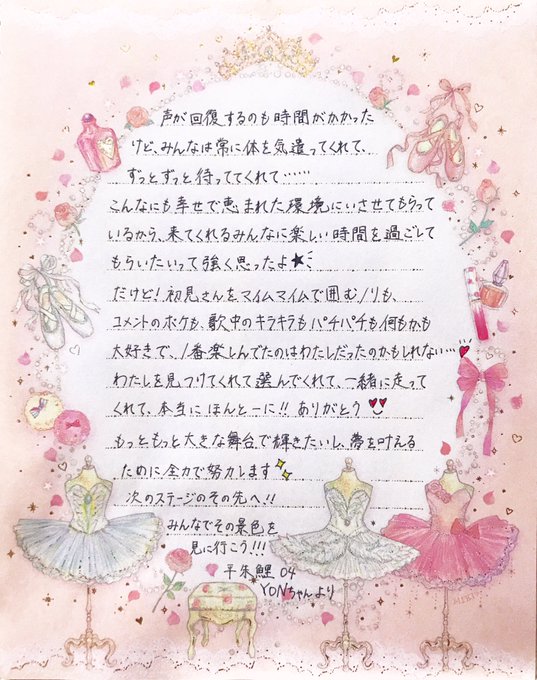 声が回復するのも時間がかかった
けど、みんなは常に体を気遣ってくれて、
ずっとずっと待っててくれて……
こんなにも幸せで恵まれた環境にいさせてもらって
いるから、来てくれるみんなに楽しい時間を過ごして
もらいたいって強く思ったよ★
だけど!初見さんをマイムマイムで囲むノリも、
コメントのボケも、歌中のキラキラもパチパチも何もかも
大好きで、1番楽しんでたのはわたしだったのかもしれない…
わたしを見つけてくれて選んでくれて、一緒に走って
くれて、本当にほんとーに!!ありがとう
もっともっと大きな舞台で輝きたいし、夢を叶える
ために全力で努力します
次のステージのその先へ!!
みんなでその景色を
見に行こう!!!
平朱鯉04
YONちゃんより